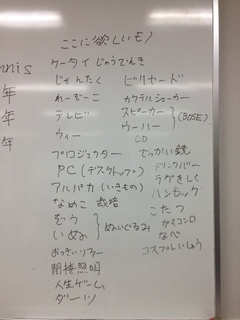 ここに欲しいモノ
nnis
年
年
年
ケータイじゅうでんき
じゃんたく
れーぞーこ
テレビ
ウィー
プロジェクター
PC(デスクトップ)
アルパカ(いきもの)
なめこ 栽培
ぞう
いぬ
ぬいぐるみ
おっきいソファー
間接照明
人生ゲーム
ダーツ
ビリヤード
カクテルシェーカー
スピーカー
ウーハー
(BOSE)
CD
でっかい鏡
ドリンクバー
ラグをしく
ハンモック
こたつ
ガスコンロ
なべ
コスプレいしょう